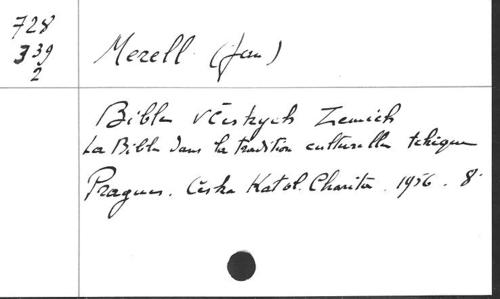 728
339
2
Merell (Jan)
Bible v Českych Zemich
La Bible dans la tradition culturelle tchèque
Prague. Česka Katol. Charita. 1956. 8°